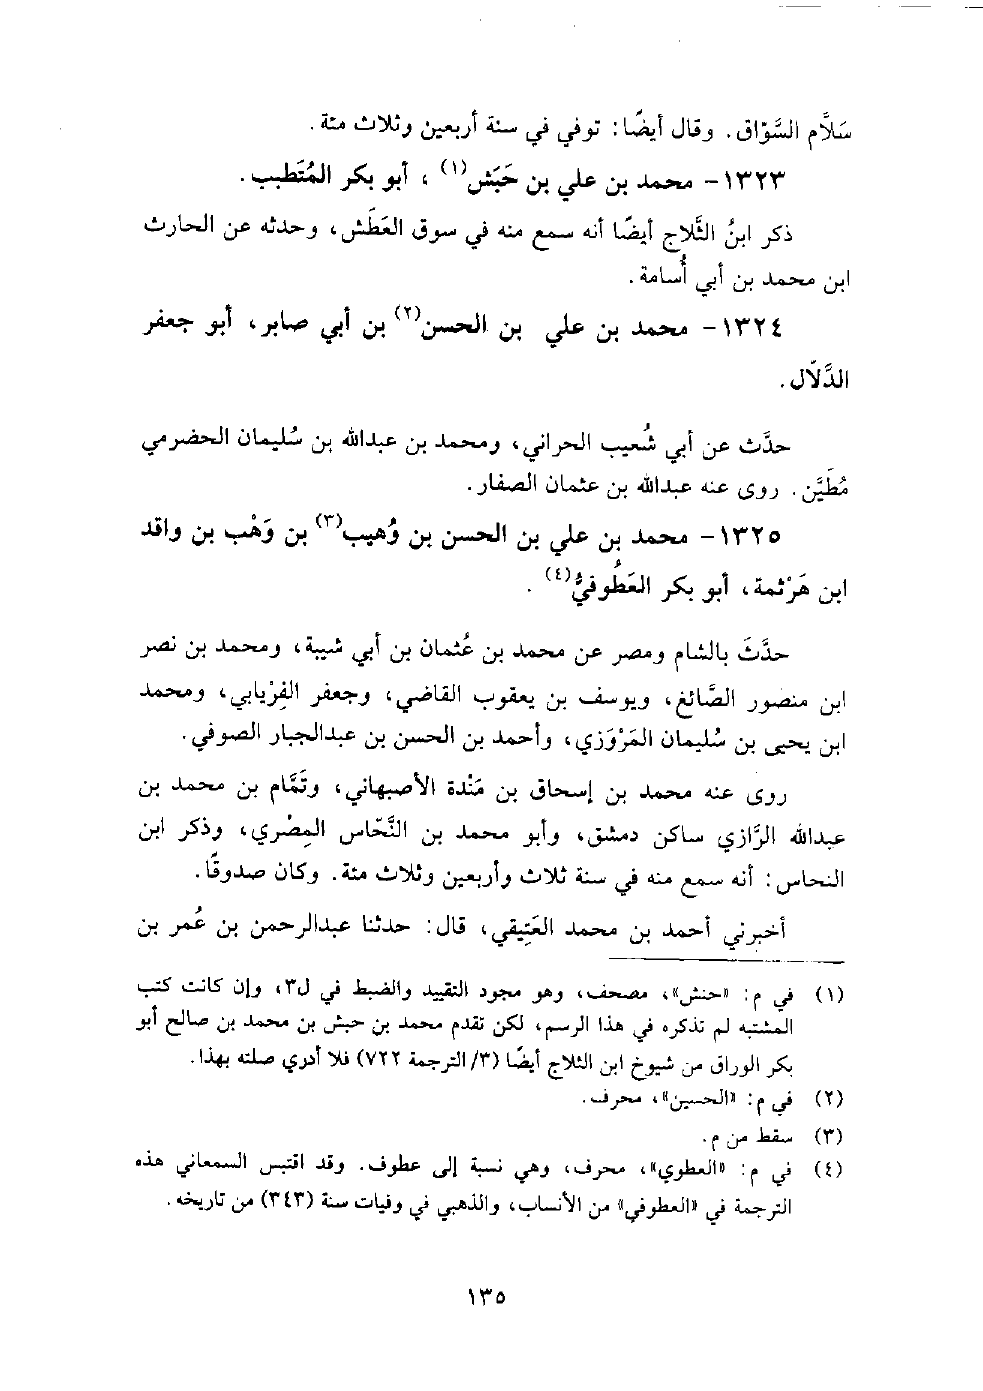 سَلَّام السَّوَّاق. وقال أيضًا: توفي في سنة أربعين وثلاث مئة.
١٣٢٣- محمد بن علي بن حَبَش(١)، أبو بكر المُتَطبب.
ذكر ابنُ الثَّلاج أيضًا أنه سمع منه في سوق العَطَش، وحدثه عن الحارث
ابن محمد بن أبي أُسامة.
١٣٢٤- محمد بن علي بن الحسن(٢) بن أبي صابر، أبو جعفر
الدَّلَّال.
حدَّث عن أبي شُعيب الحراني، ومحمد بن عبدالله بن سُليمان الحضرمي
مُطَيَّن. روى عنه عبدالله بن عثمان الصفار.
١٣٢٥- محمد بن علي بن الحسن بن وُهيب(٣) بن وَهْب بن واقد
ابن هَرْثمة، أبو بكر العَطُوفيُّ(٤).
حدَّثَ بالشام ومصر عن محمد بن عُثمان بن أبي شيبة، ومحمد بن نصر
ابن منصور الصَّائغ، ويوسف بن يعقوب القاضي، وجعفر الفِرْيابي، ومحمد
ابن يحيى بن سُليمان المَرْوَزي، وأحمد بن الحسن بن عبدالجبار الصوفي.
روى عنه محمد بن إسحاق بن مَنْدة الأصبهاني، وتَمَّام بن محمد بن
عبدالله الرَّازي ساكن دمشق، وأبو محمد بن النَّحّاس المِصْري، وذكر ابن
النحاس: أنه سمع منه في سنة ثلاث وأربعين وثلاث مئة. وكان صدوقًا.
أخبرني أحمد بن محمد العَتِيقي، قال: حدثنا عبدالرحمن بن عُمر بن
(١) في م: «حنش»، مصحف، وهو مجود التقييد والضبط في ل٣، وإن كانت كتب
المشتبه لم تذكره في هذا الرسم، لكن تقدم محمد بن حبش بن محمد بن صالح أبو
بكر الوراق من شيوخ ابن الثلاج أيضًا (٣/ الترجمة ٧٢٢) فلا أدري صلته بهذا.
(٢) في م: «الحسين»، محرف.
(٣) سقط من م.
(٤) في م: «العطوي»، محرف، وهي نسبة إلى عطوف. وقد اقتبس السمعاني هذه
الترجمة في «العطوفي» من الأنساب، والذهبي في وفيات سنة (٣٤٣) من تاريخه.
١٣٥